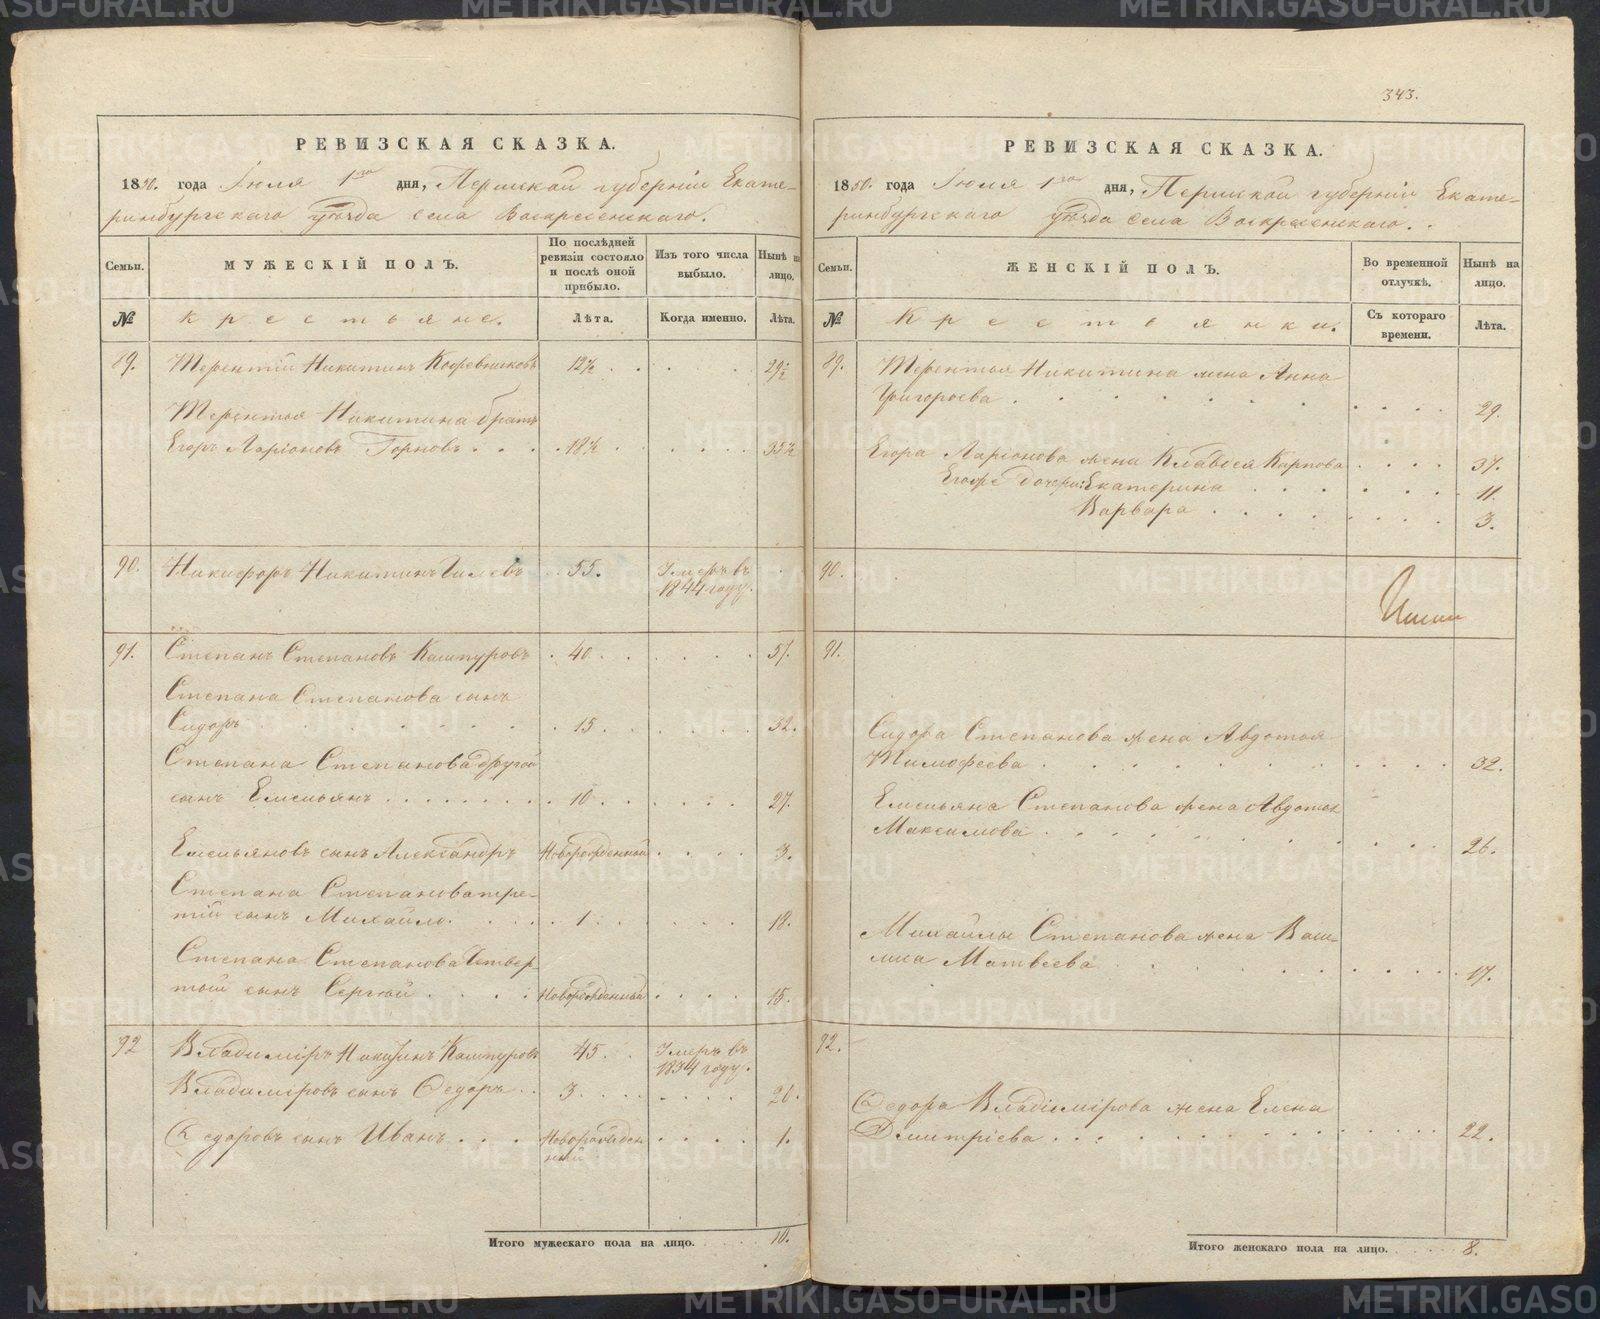 343.
РЕВИЗСКАЯ СКАЗКА.
1850. года Іюля 1го дня, Пермской губерніи Екате-
ринбургскаго уѣзда села Воскресенскаго.
Семьи.
МУЖЕСКІЙ ПОЛЪ.
По послѣдней ревизіи состояло и послѣ оной прибыло.
Изъ того числа выбыло.
Нынѣ на лицо.
№
Крестьяне.
Лѣта.
Когда именно.
Лѣта.
89. Терентій Никитинъ Кожевниковъ 12½ 29½
Терентья Никитина братъ
Егоръ Ларіоновъ Горновъ 18½ 35½
90. Никифоръ Никитинъ Гилевъ 55. Умеръ въ
1844 году.
91. Степанъ Степановъ Кашпуровъ 40 57.
Степана Степанова сынъ
Сидоръ 15 32.
Степана Степанова другой
сынъ Емельянъ 10 27.
Емельяновъ сынъ Александръ Новорожденный 3.
Степана Степанова тре-
тій сынъ Михайло. 1 18.
Степана Степанова четвер-
тый сынъ Сергѣй Новорожденный 15.
92 Владиміръ Кашпуровъ 45 Умеръ въ
1834 году.
Владиміровъ сынъ Ѳедоръ 3 20.
Ѳедоровъ сынъ Иванъ Новорожден 1.
ный
Итого мужескаго пола на лицо. 10.
РЕВИЗСКАЯ СКАЗКА.
1850. года Іюля 1го дня, Пермской губерніи Екате-
ринбургскаго уѣзда села Воскресенскаго.
Семьи.
ЖЕНСКІЙ ПОЛЪ.
Во временной отлучкѣ.
Нынѣ на лицо.
№
Крестьянки.
Съ котораго времени.
Лѣта.
89. Терентья Никитина жена Анна
Григорьева 29.
Егора Ларіонова жена Клавдея Карпова 37.
Егора дочери: Екатерина 11.
Варвара 3.
90.
91.
Сидора Степанова жена Авдотья
Тимофеева 32.
Емельяна Степанова жена Авдотья
Максимова 26.
Михайлы Степанова жена Васи-
лиса Матвѣева 17.
92.
Ѳедора Владімірова жена Елена
Дмитріева 22.
Итого женскаго пола на лицо. 8.
METRIKI.GASO-URAL.RU